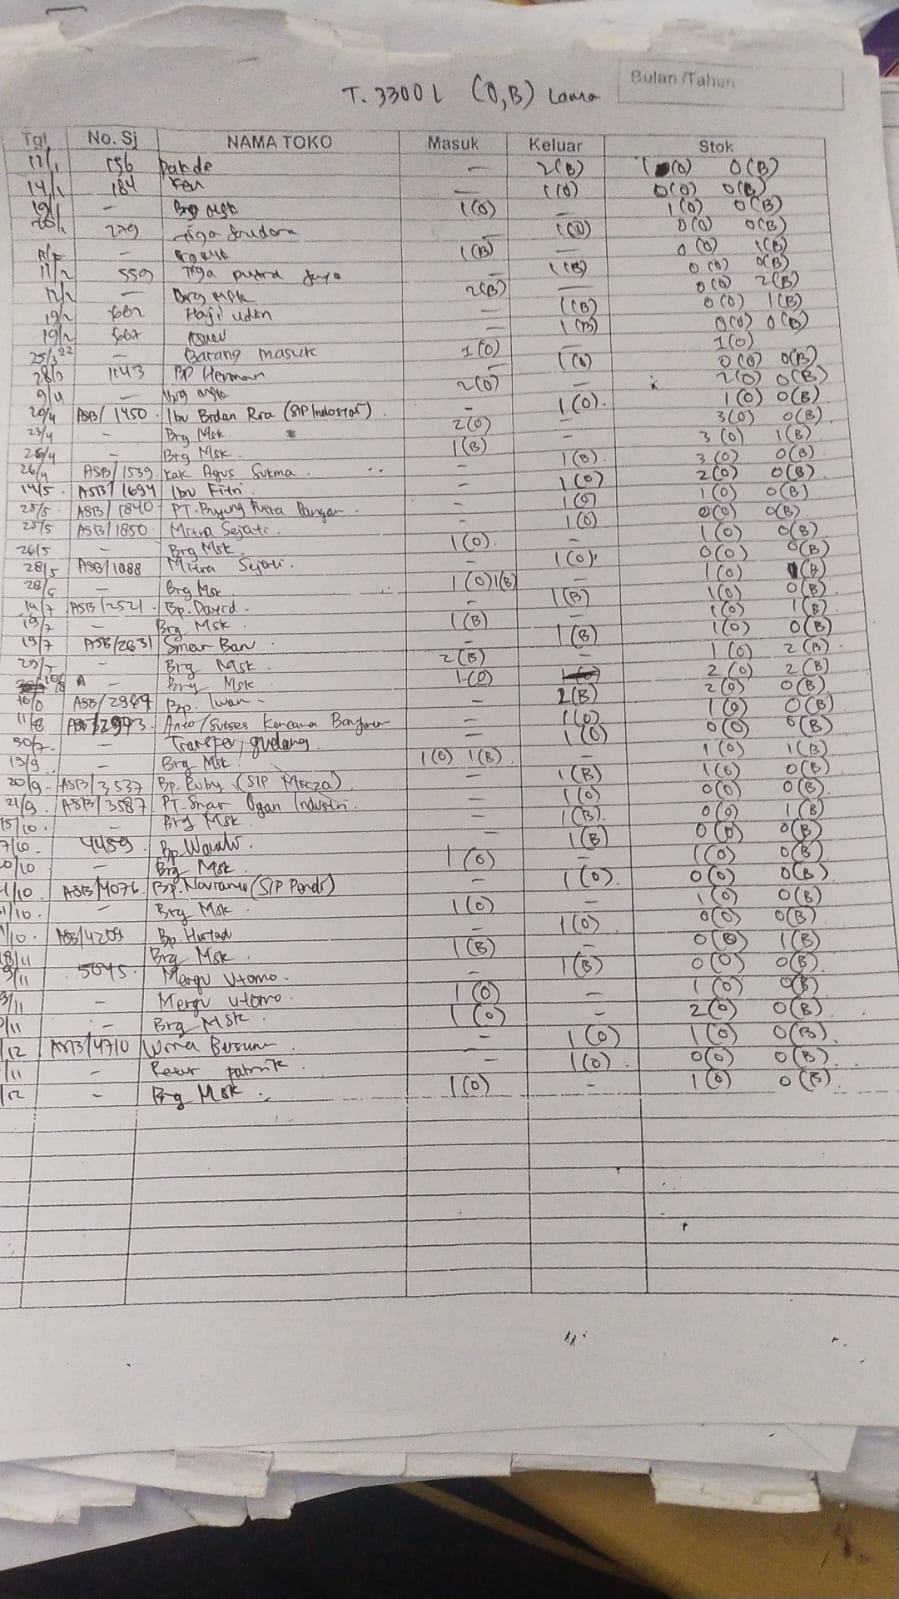 Bulan /Tahun
T. 3300 L (O,B) Lama
Tgl No. Sj NAMA TOKO Masuk Keluar Stok
12/1 156 Pak de — 2(B) 1(O) 0(B)
14/1 184 — 1(O) 0(O) 0(B)
19/1 — Brg msk 1(O) — 1(O) 0(B)
20/1 279 Tiga — 1(O) 0(O) 0(B)
— 1(B) — 0(O) 1(B)
11/2 559 Tiga putra Jaya — 1(B) 0(O) 0(B)
12/2 — Brg msk 2(B) — 0(O) 2(B)
19/2 662 Haji udin — 1(B) 0(O) 1(B)
19/2 667 — 1(B) 0(O) 0(B)
25/3 22 — Barang masuk 1(O) — 1(O)
28/3 1143 BP Herman — 1(O) 0(O) 0(B)
9/4 — Brg 2(O) — 2(O) 0(B)
20/4 ASB/ 1450 Ibu Bidan Ria (SIP Indostar) — 1(O). 1(O) 0(B)
23/4 — Brg Msk 2(O) — 3(O) 0(B)
26/4 — Brg Msk. 1(B) — 3(O) 1(B)
26/4 ASB/1539 Kak Agus Sukma. — 1(B) 3(O) 0(B)
14/5. ASB/1694 Ibu Fitri. — 1(O) 2(O) 0(B)
25/5. ASB/ 1840 PT. Putra — 1(O) 1(O) 0(B)
25/5 ASB/1850. Mitra Sejati. — 1(O) 0(O) 0(B)
26/5 — Brg Msk. 1(O). — 1(O) 0(B)
28/5 ASB/1088 Mitra Sejati. — 1(O). 0(O) 0(B)
28/5 — Brg Msk 1(O)1(B) — 1(O) 1(B)
14/7 ASB/2521. Bp. David. — 1(B) 1(O) 0(B)
19/7 — Brg Msk. 1(B) — 1(O) 1(B)
19/7 ASB/2631 Sinar Ban. — 1(B) 1(O) 0(B)
— Brg Msk. 2(B) — 1(O) 2(B)
10/8 — Brg Msk 1(O) 2(O) 2(B)
10/8 ASB/2969 Bp. Iwan — 2(B) 2(O) 0(B)
11/8 2993. Anto/Sukses Kencana — 1(O) 1(O) 0(B)
30/7. — Transfer gudang — 1(O) 0(O) 0(B)
13/9 — Brg Msk. 1(O) 1(B) — 1(O) 1(B)
20/9 ASB/3,537 Bp. Ruby (SIP) — 1(B) 1(O) 0(B)
21/9. ASB/3587 PT. Sinar Ogan Industri. — 1(O) 0(O) 0(B)
15/10. — Brg Msk. — 1(B). 0(O) 1(B)
7/10. 4459 Bp. — 1(B) 0(O) 0(B)
0/10 — Brg Msk. 1(O) — 1(O) 0(B)
1/10 ASB/4076 Bp. (SIP) — 1(O). 0(O) 0(B)
1/10. — Brg Msk. 1(O) — 1(O) 0(B)
/10. ASB/4209 Bp. — 1(O) 0(O) 0(B)
18/11 — Brg Msk. 1(B) — 0(O) 1(B)
9/11 5045 Mergu Utomo. — 1(B) 0(O) 0(B)
3/11 — Mergu utomo. 1(O) — 1(O) 0(B)
0/11 — Brg Msk. 1(O) — 2(O) 0(B)
/12 ASB/4710 Warna — 1(O) 1(O) 0(B)
/11 — Retur pabrik. — 1(O) 0(O) 0(B)
/12 — Brg Msk. 1(O) — 1(O) 0(B)